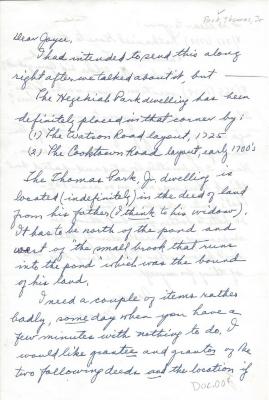 Park, Thomas, Jr
Dear Joyce,
I had intended to send this along
right after we talked about it but
The Hezekiah Park dwelling has been
definitely placed in that corner by:
(1) The Watson Road layout, 1725
(2) The Cooktown Road layout, early 1700's
The Thomas Park, Jr. dwelling is
located (indefinitely) in the deed of land
from his father (I think to his widow).
It has to be north of the pond and
west of "the small brook that runs
into the pond" which was the bound
of his land.
I need a couple of items rather
badly, some day when you have a
few minutes with nothing to do. I
would like grantee and grantor of the
two following deeds and the location if